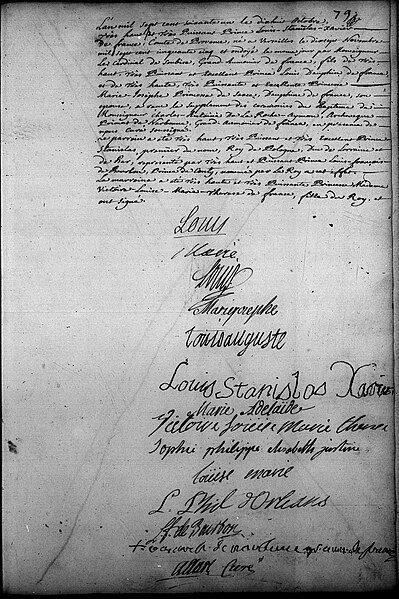 79
L'an mil sept cent soixante un le dixhuit Octobre,
Très haut et Très Puissant Prince Louis-Stanislas-Xavier
de france, Comte de Provence, né a Versailles le dixsept Novembre
mil sept cent cinquante cinq et ondoyé le meme jour par Monseigneur
le cardinal de Soubise, Grand Aumonier de france, fils de Très
haut, Très Puissant et Excellent Prince Louis Dauphin de france,
et de Très haute, Très Puissante et Excellente Princesse
Marie-Josephe Princesse de Saxe, Dauphine de france son
epouse, a reçu le Supplement des ceremonies du Baptême de
Monseigneur Charles-Antoine de La Roche-Aymon, Archevêque
Primat de Narbonne, Grand Aumonier de france, en presence de
nous curé soussigné.
Le parrain a été Très haut, Très Puissant et Très Excellent Prince
Stanislas, premier du nom, Roy de Pologne, Duc de Lorraine et
de Bar, représenté par Très haut et Puissant Prince Louis-françois
de Bourbon, Prince de Conty, nommé par Le Roy a cet effet.
La marraine a été Très haute et Très Puissante Princesse Madame
Victoire Louise-Marie-Therese de france, fille du Roy, et
ont signé.
Louis
Marie
Louis
Mariejosephe
Louis auguste
Louis Stanislas Xavier
Marie Adelaïde
Victoire Louise Marie Therese
Sophie philippe elisabeth justine
Louise marie
L. Phil d'Orleans
de Bourbon
+ archev. de narbonne
allart Curé